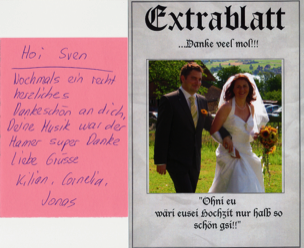 Hoi Sven
Nochmals ein recht
herzliches
Dankeschön an dich,
Deine Musik war der
Hamer super Danke
Liebe Grüsse
Kilian, Cornelia,
Jonas
Extrablatt
...Danke veel mol!!
"Ohni eu
wäri eusei Hochzit nur halb so
schön gsi!!"